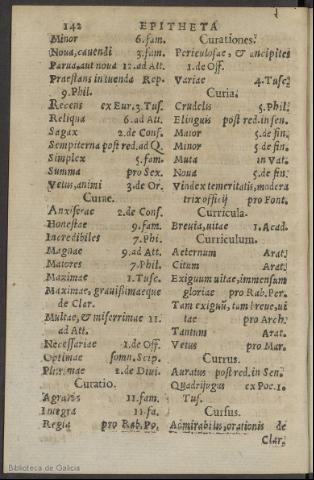 142 EPITHETA
Minor 6. fam.
Noua, cauendi 3. fam.
Parua, aut noua 12. ad Att.
Praestans in tuenda Rep.
9. Phil.
Recens ex Eur. 3. Tus.
Reliqua 6. ad Att.
Sagax 2. de Cons.
Sempiterna post red. ad Q.
Simplex 5. fam.
Summa pro Sex.
Vetus, animi 3. de Or.
Curae.
Anxiferae 2. de Cons.
Honestae 9. fam.
Incredibiles 7. Phi.
Magnae 9. ad Att.
Maiores 7. Phil.
Maximae 1. Tusc.
Maximae, grauissimaeque
de Clar.
Multae, & miserrimae 11.
ad Att.
Necessariae 1. de Off.
Optimae somn. Scip.
Plurimae 2. de Diui.
Curatio.
Agraria 11. fam.
Integra 11. fa.
Regia pro Rab. Po.
Curationes.
Periculosae, & ancipites
1. de Off.
Variae 4. Tusc.
Curia.
Crudelis 5. Phil.
Elinguis post red. in sen.
Maior 5. de fin.
Minor 5. de fin.
Muta in Vat.
Noua 5. de fin.
Vindex temeritatis, modera
trix officij pro Font.
Curricula.
Breuia, uitae 1. Acad.
Curriculum.
Aeternum Arat.
Citum Arat.
Exiguum uitae, immensum
gloriae pro Rab. Per.
Tam exiguũ, tam breue, ui
tae pro Arch.
Tantum Arat.
Vetus pro Mar.
Currus.
Auratus post red. in Sen.
Quadrijugus ex Poe. 1.
Tus.
Cursus.
Admirabilis, orationis de
Clar.
Biblioteca de Galicia